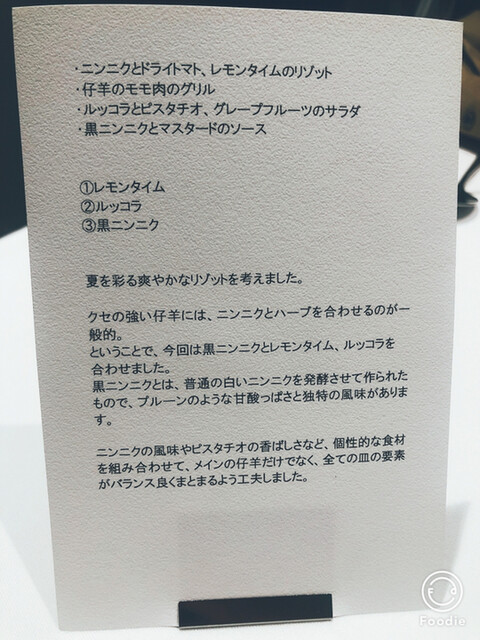 ・ニンニクとドライトマト、レモンタイムのリゾット
・仔羊のモモ肉のグリル
・ルッコラとピスタチオ、グレープフルーツのサラダ
・黒ニンニクとマスタードのソース
①レモンタイム
②ルッコラ
③黒ニンニク
夏を彩る爽やかなリゾットを考えました。
クセの強い仔羊には、ニンニクとハーブを合わせるのが一
般的。
ということで、今回は黒ニンニクとレモンタイム、ルッコラを
合わせました。
黒ニンニクとは、普通の白いニンニクを発酵させて作られた
もので、プルーンのような甘酸っぱさと独特の風味がありま
す。
ニンニクの風味やピスタチオの香ばしさなど、個性的な食材
を組み合わせて、メインの仔羊だけでなく、全ての皿の要素
がバランス良くまとまるよう工夫しました。
F d
Foodie